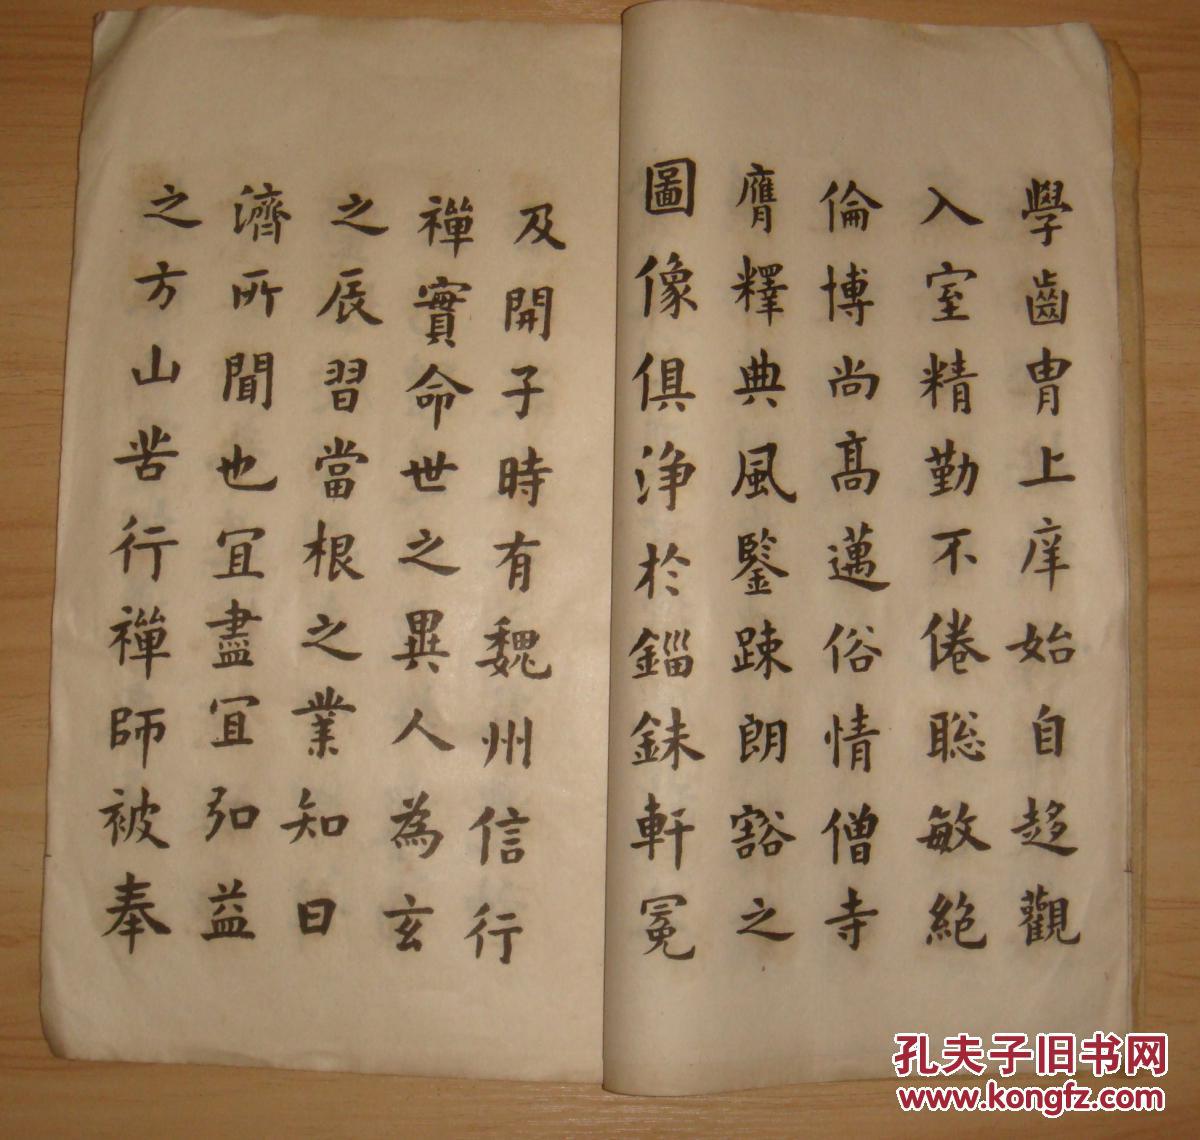 學齒胄上庠始自趍觀
入室精勤不倦聡敏絶
倫博尚髙邁俗情僧寺
膺釋典風鑒踈朗豁之
圖像俱浄於錙銖軒冕
及開子時有魏州信行
禅實命世之異人為玄
之辰習當根之業知日
濟所聞也冝盡冝弘益
之方山苦行禅師被奉
孔夫子旧书网
www.kongfz.com